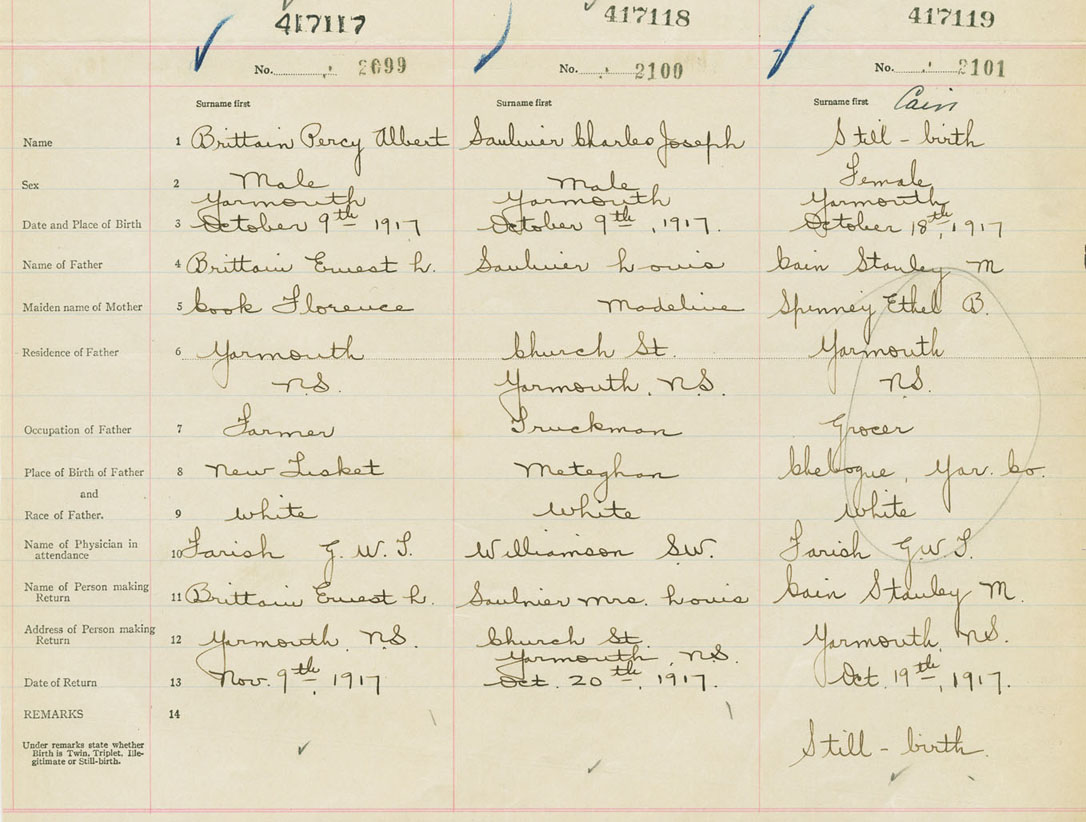 417117 417118 417119
No. 2099 No. 2100 No. 2101
Surname first Surname first Surname first Cain
Name 1 Brittain Percy Albert Saulnier Charles Joseph Still - birth
Sex 2 Male Male Female
Yarmouth Yarmouth Yarmouth
Date and Place of Birth 3 October 9th 1917 October 9th, 1917. October 18th, 1917
Name of Father 4 Brittain Ernest L. Saulnier Louis Cain Stanley M
Maiden name of Mother 5 Cook Florence Madeline Spinney Ethel B.
Residence of Father 6 Yarmouth Church St. Yarmouth
N.S. Yarmouth, N.S. N.S.
Occupation of Father 7 Farmer Truckman Grocer
Place of Birth of Father 8 New Tusket Meteghan Chebogue, Yar. Co.
and
Race of Father. 9 White White White
Name of Physician in
attendance 10 Farish G. W. T. Williamson S.W. Farish G.W.T.
Name of Person making
Return 11 Brittain Ernest L. Saulnier Mrs. Louis Cain Stanley M.
Address of Person making
Return 12 Yarmouth, N.S. Church St. Yarmouth, N.S.
Yarmouth, N.S.
Date of Return 13 Nov. 9th, 1917 Oct. 20th, 1917. Oct. 19th, 1917.
REMARKS 14
Under remarks state whether
Birth is Twin, Triplet, Ille-
gitimate or Still-birth.
Still - birth.